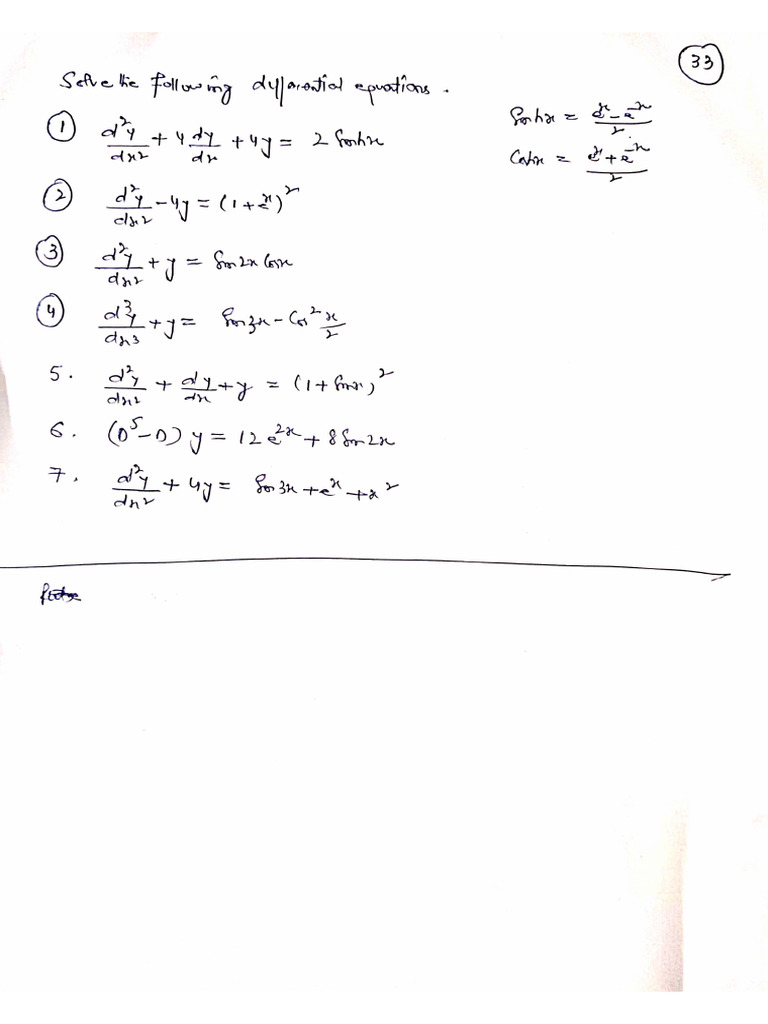 33
Solve the following differential equations.
① d²y/dx² + 4 dy/dx + 4y = 2 Sinhx
Sinhx = (eˣ - e⁻ˣ)/2
Coshx = (eˣ + e⁻ˣ)/2
② d²y/dx² - 4y = (1 + eˣ)²
③ d²y/dx² + y = Sin2x Cosx
④ d³y/dx³ + y = Sin3x - Cos² x/2
5. d²y/dx² + dy/dx + y = (1 + Sinx)²
6. (D⁵ - D) y = 12 e²ˣ + 8 Sin2x
7. d²y/dx² + 4y = Sin3x + eˣ + x²